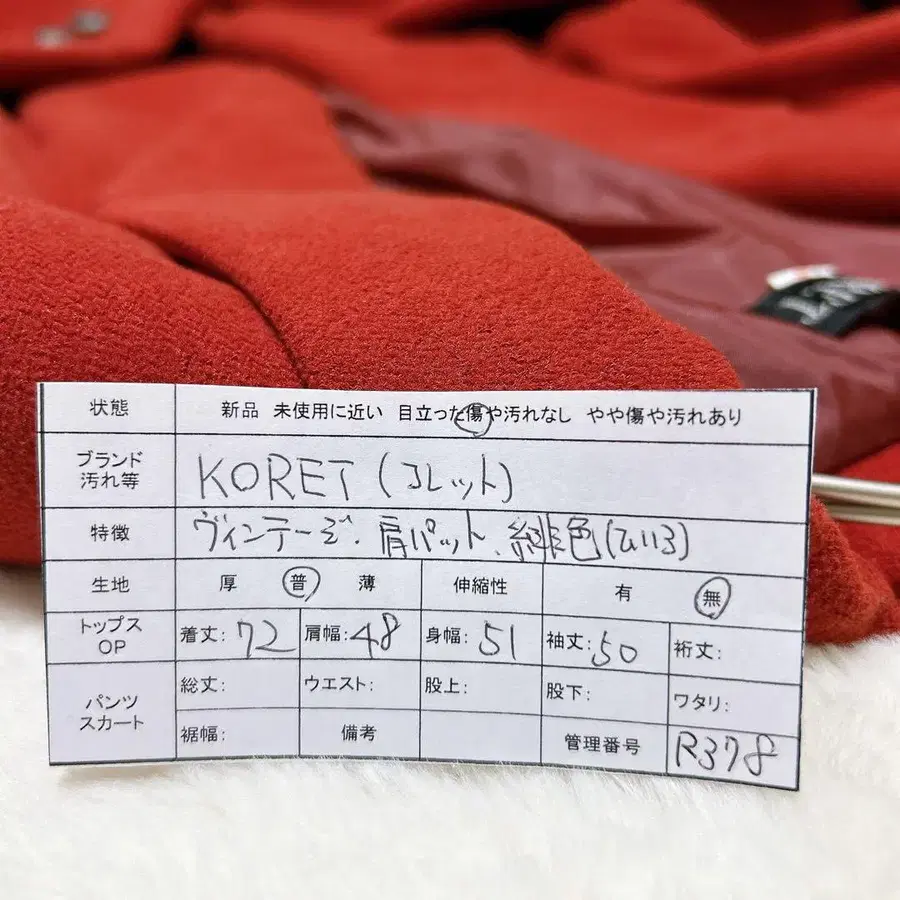 状態 新品 未使用に近い 目立った傷や汚れなし やや傷や汚れあり
ブランド 汚れ等 KORET (コレット)
特徴 ヴィンテージ、肩パット、緋色(ひいろ)
生地 厚 普 薄 伸縮性 有 無
トップス OP 着丈: 72 肩幅: 48 身幅: 51 袖丈: 50 裄丈:
パンツ スカート 総丈: ウエスト: 股上: 股下: ワタリ:
裾幅: 備考 管理番号 R378